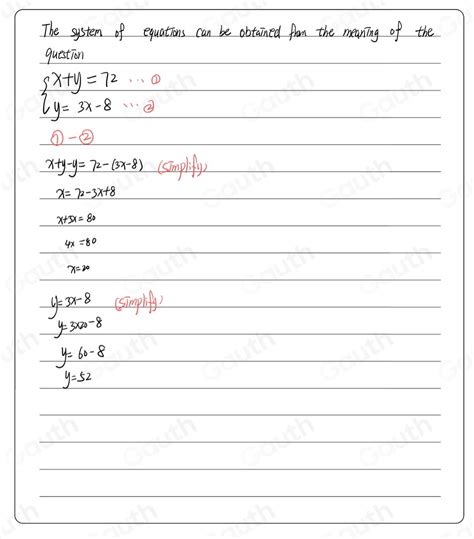 The system of equations can be obtained from the meaning of the
question
x+y=72 ... ①
y= 3x-8 ... ②
①-②
x+y-y= 72-(3x-8) (simplify)
x= 72-3x+8
x+3x= 80
4x =80
x=20
y=3x-8 (simplify)
y=3×20-8
y= 60-8
y=52